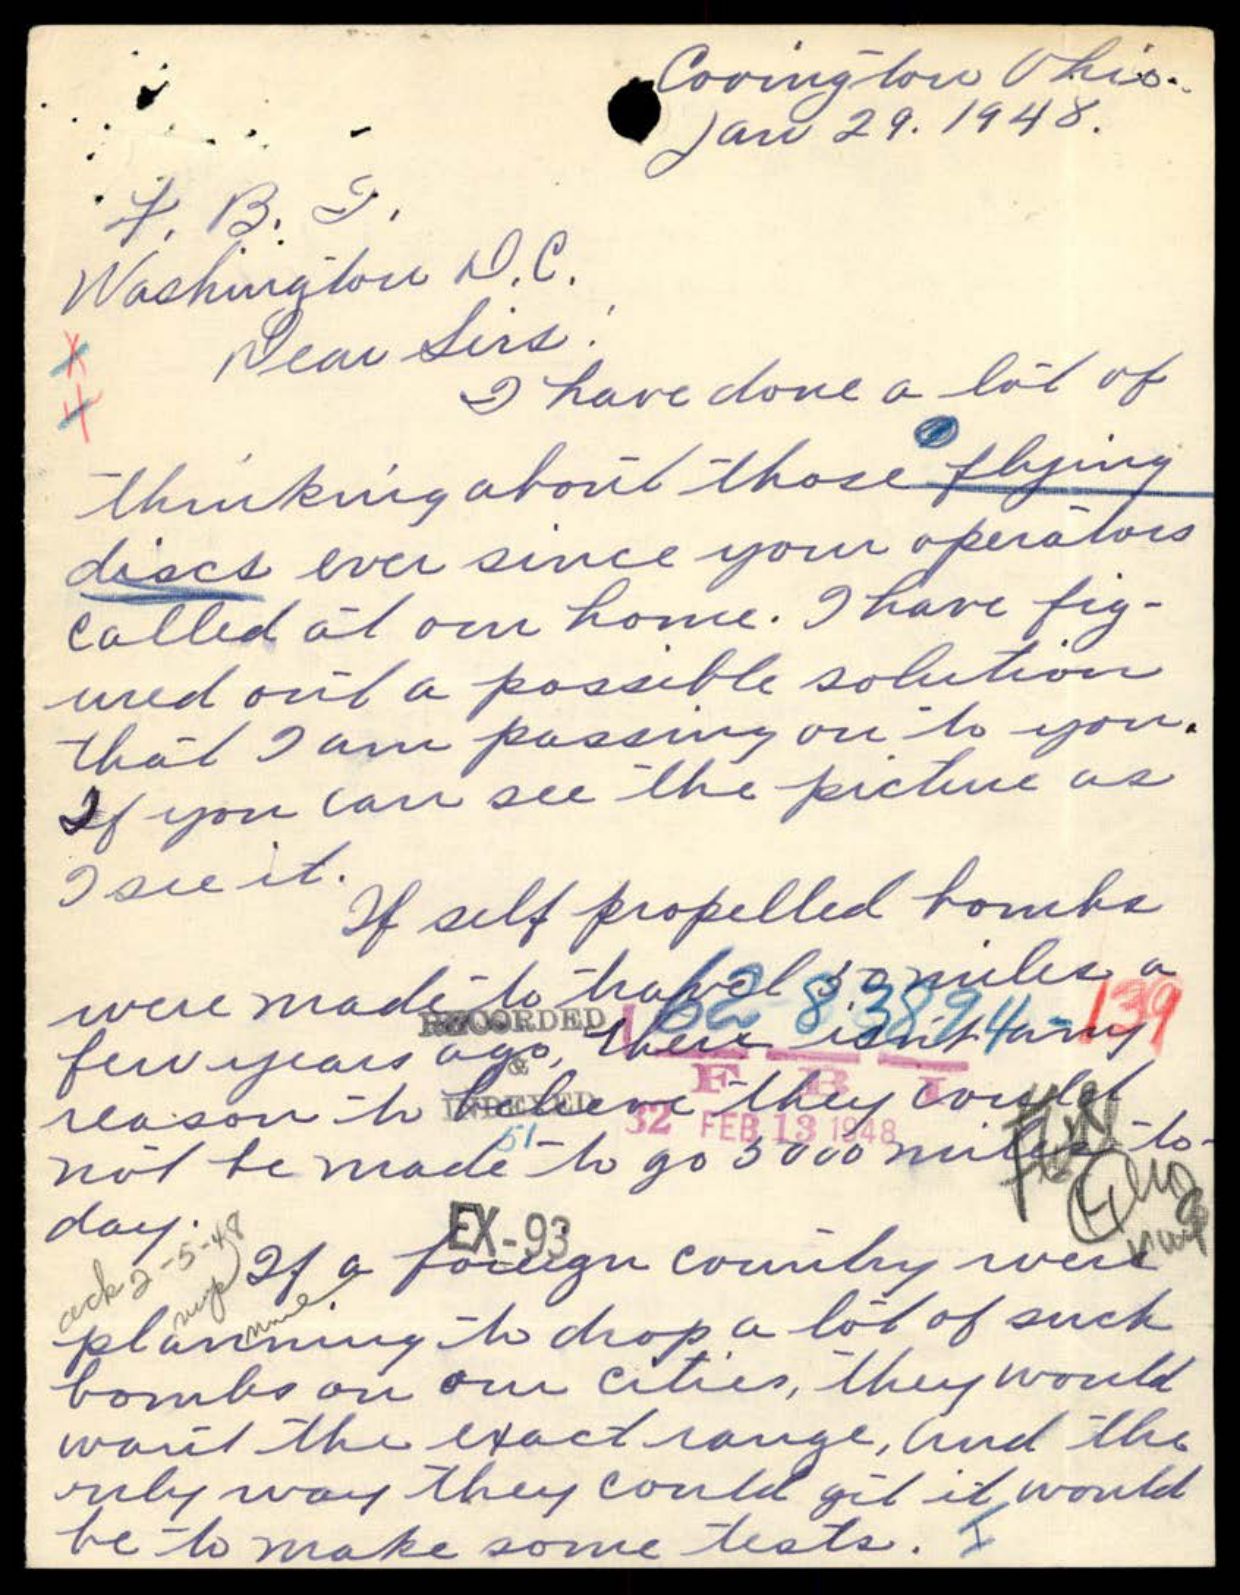 Covington Ohio.
Jan 29. 1948.
F. B. I.
Washington D.C.
Dear Sirs!
I have done a lot of
thinking about those flying
discs ever since your operators
called at our home. I have fig-
ured out a possible solution
that I am passing on to you.
If you can see the picture as
I see it.
If self propelled bombs
were made to travel 50 miles a
62-83894-139
RECORDED
few years ago, there isn't any
&
F B I
reason to believe they could
INDEXED
32 FEB 13 1948
51
not be made to go 5000 miles to-
day.
EX-93
ack 2-5-48
If a foreign country were
planning to drop a lot of such
bombs on our cities, they would
want the exact range, and the
only way they could git it would
be to make some tests.